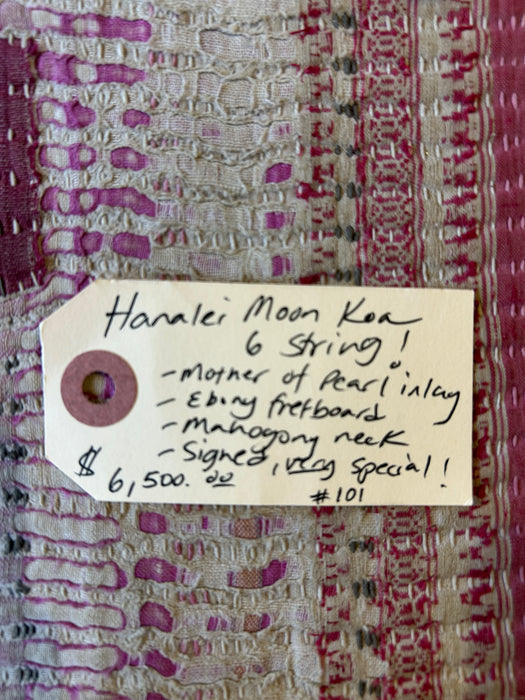 Hanalei Moon Koa
6 String!
- Mother of Pearl inlay
- Ebony fretboard
- Mahogony neck
- Signed, very special!
$ 6,500.00
#101